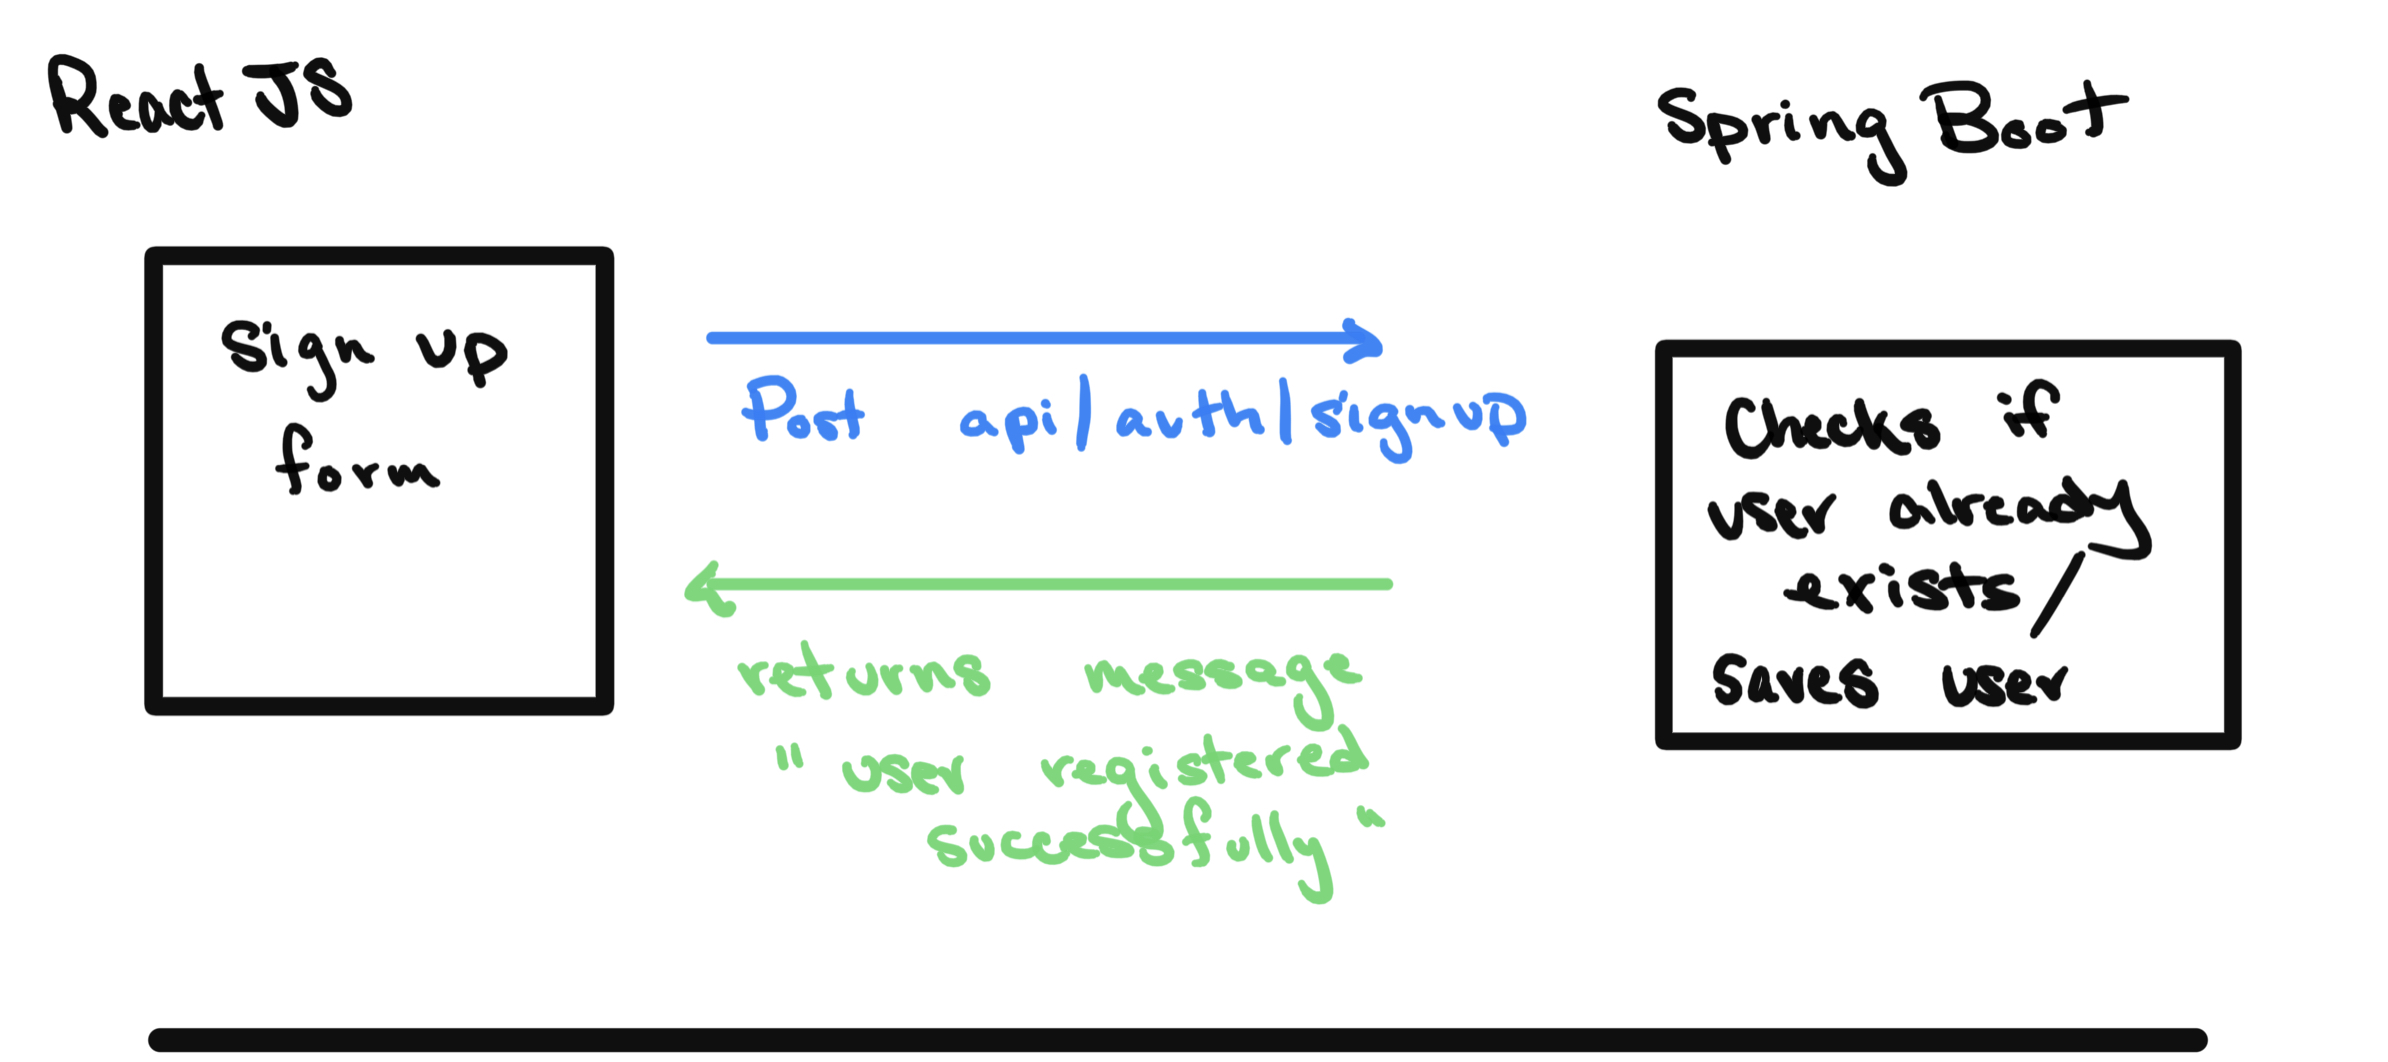 React JS
Spring Boot
Sign up
form
Post api/auth/signup
returns message
"user registered
successfully"
Checks if
user already
exists /
Saves user